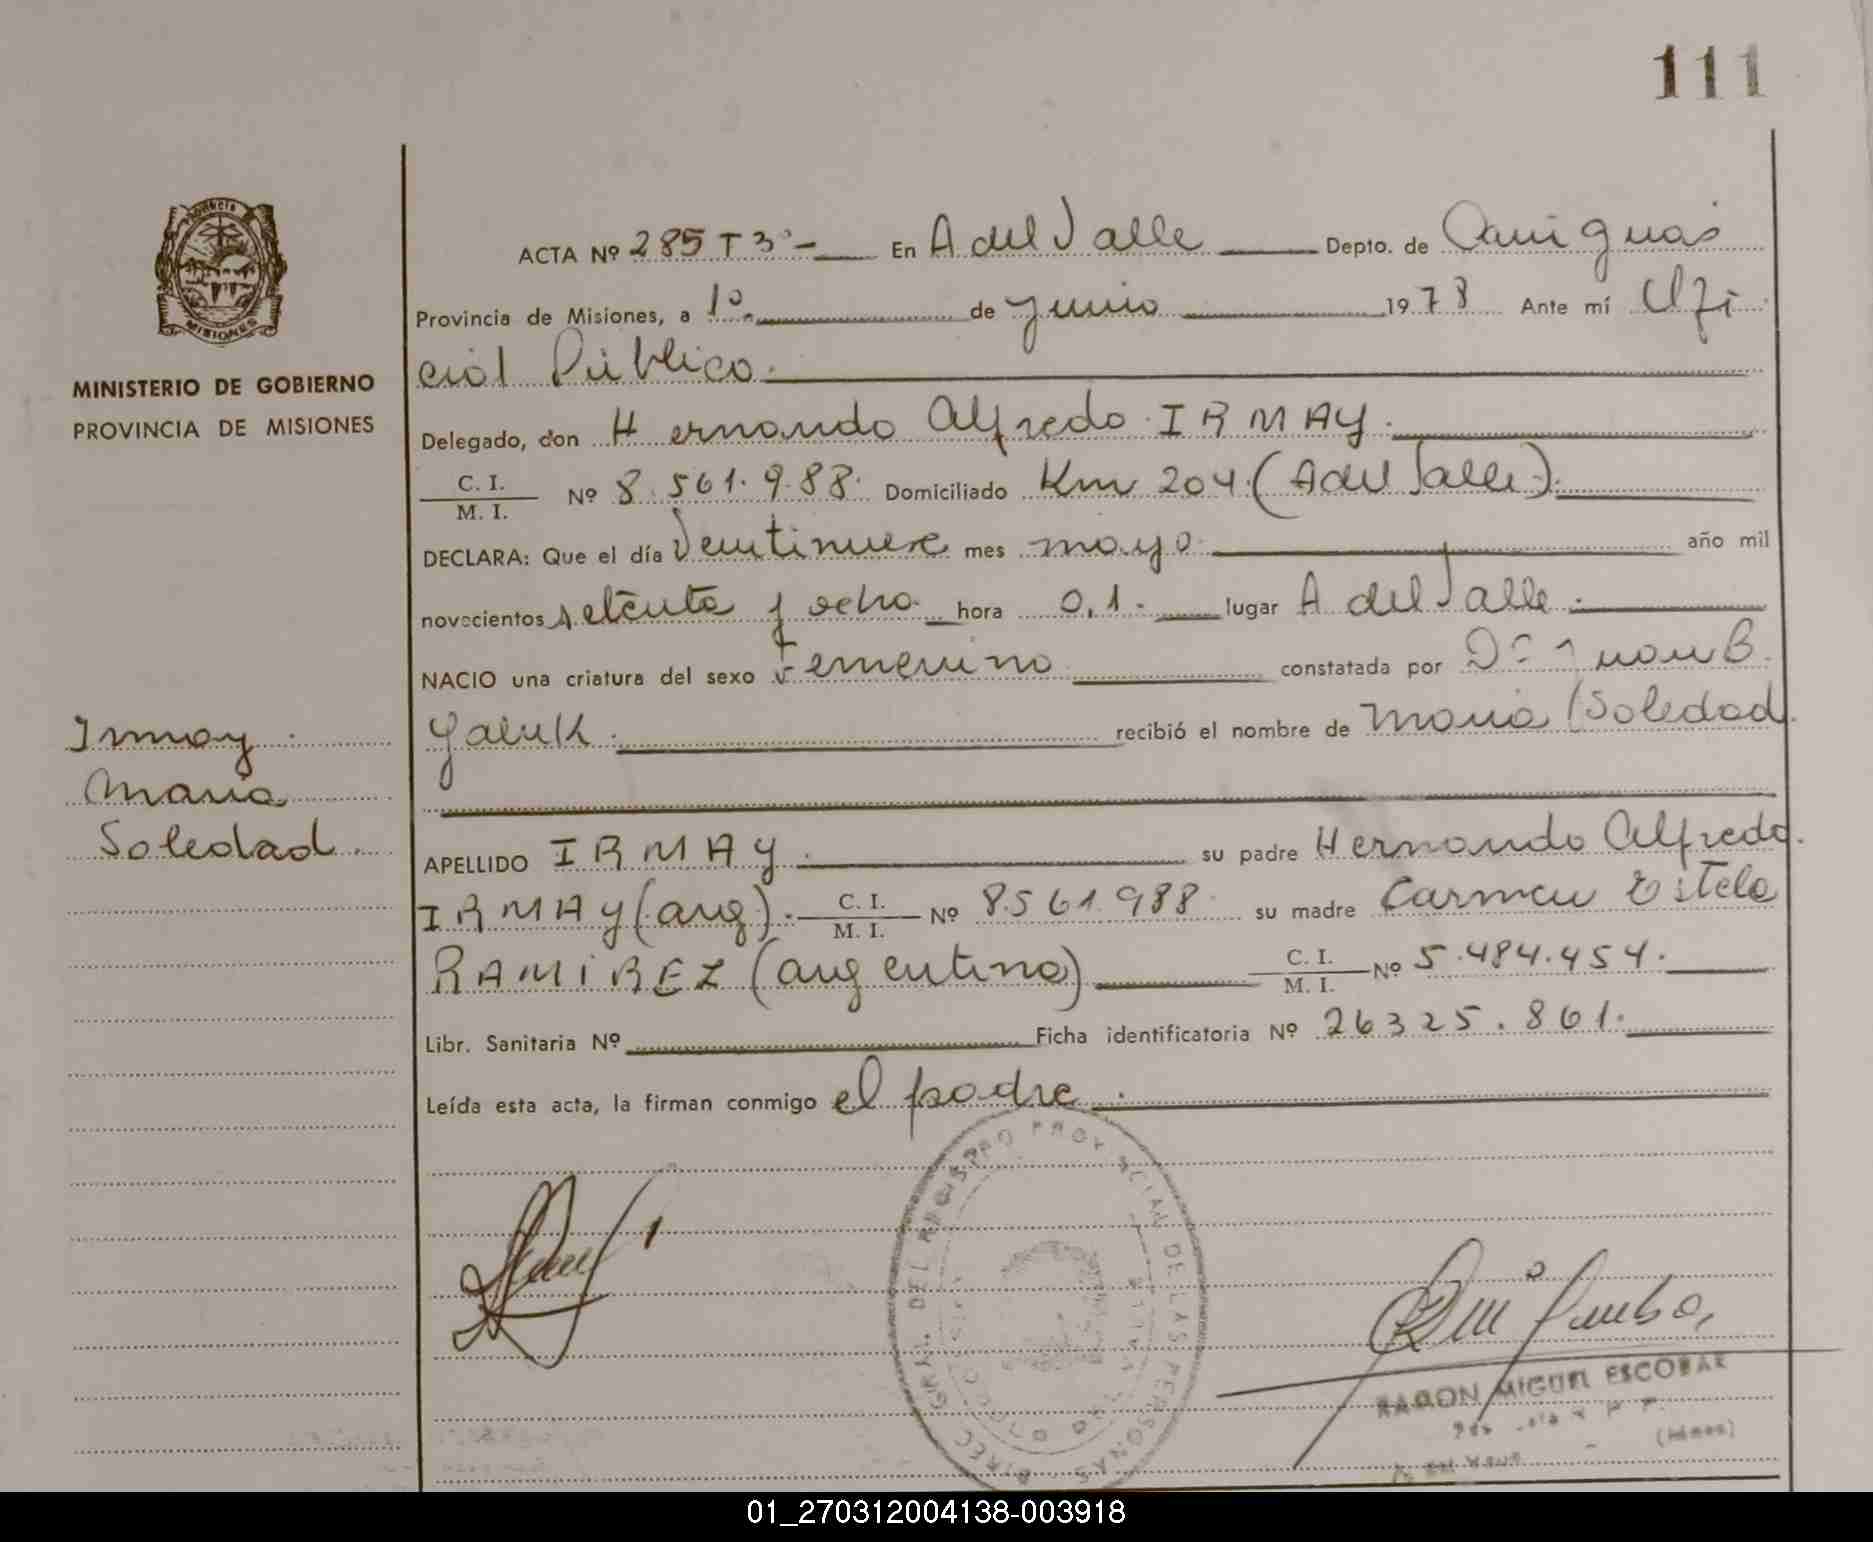 111
PROVINCIA
MISIONES
MINISTERIO DE GOBIERNO
PROVINCIA DE MISIONES
ACTA Nº 285 T 3º- En A del Valle Depto. de Cainguás
Provincia de Misiones, a 1º de junio 1978 Ante mí Ofi
cial Público.
Delegado, don Hernando Alfredo IRMAY.
C. I.
M. I. Nº 8.561.988. Domiciliado Km 204 (A del Valle).
DECLARA: Que el día Veintinueve mes mayo año mil
novecientos setenta y ocho. hora 0,1. lugar A del Valle.
NACIO una criatura del sexo femenino constatada por Dr. Juan B.
recibió el nombre de María Soledad.
Irmay
María
Soledad.
APELLIDO IRMAY. su padre Hernando Alfredo.
IRMAY (arg). C. I.
M. I. Nº 8561988. su madre Carmen Estela
RAMIREZ (argentina) C. I.
M. I. Nº 5.484.454.
Libr. Sanitaria Nº Ficha identificatoria Nº 26325.861.
Leída esta acta, la firman conmigo el padre.
DIREC. GRAL. DEL REGISTRO PROVINCIAL DE LAS PERSONAS
RAMON MIGUEL ESCOBAR
01_270312004138-003918